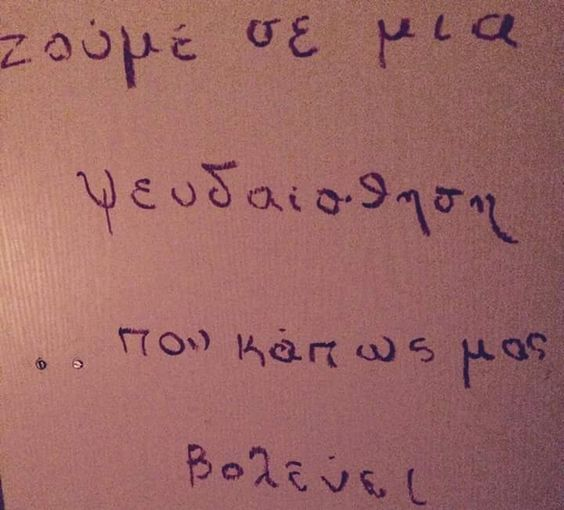 ζούμε σε μια
ψευδαίσθηση
.. που κάπως μας
βολεύει